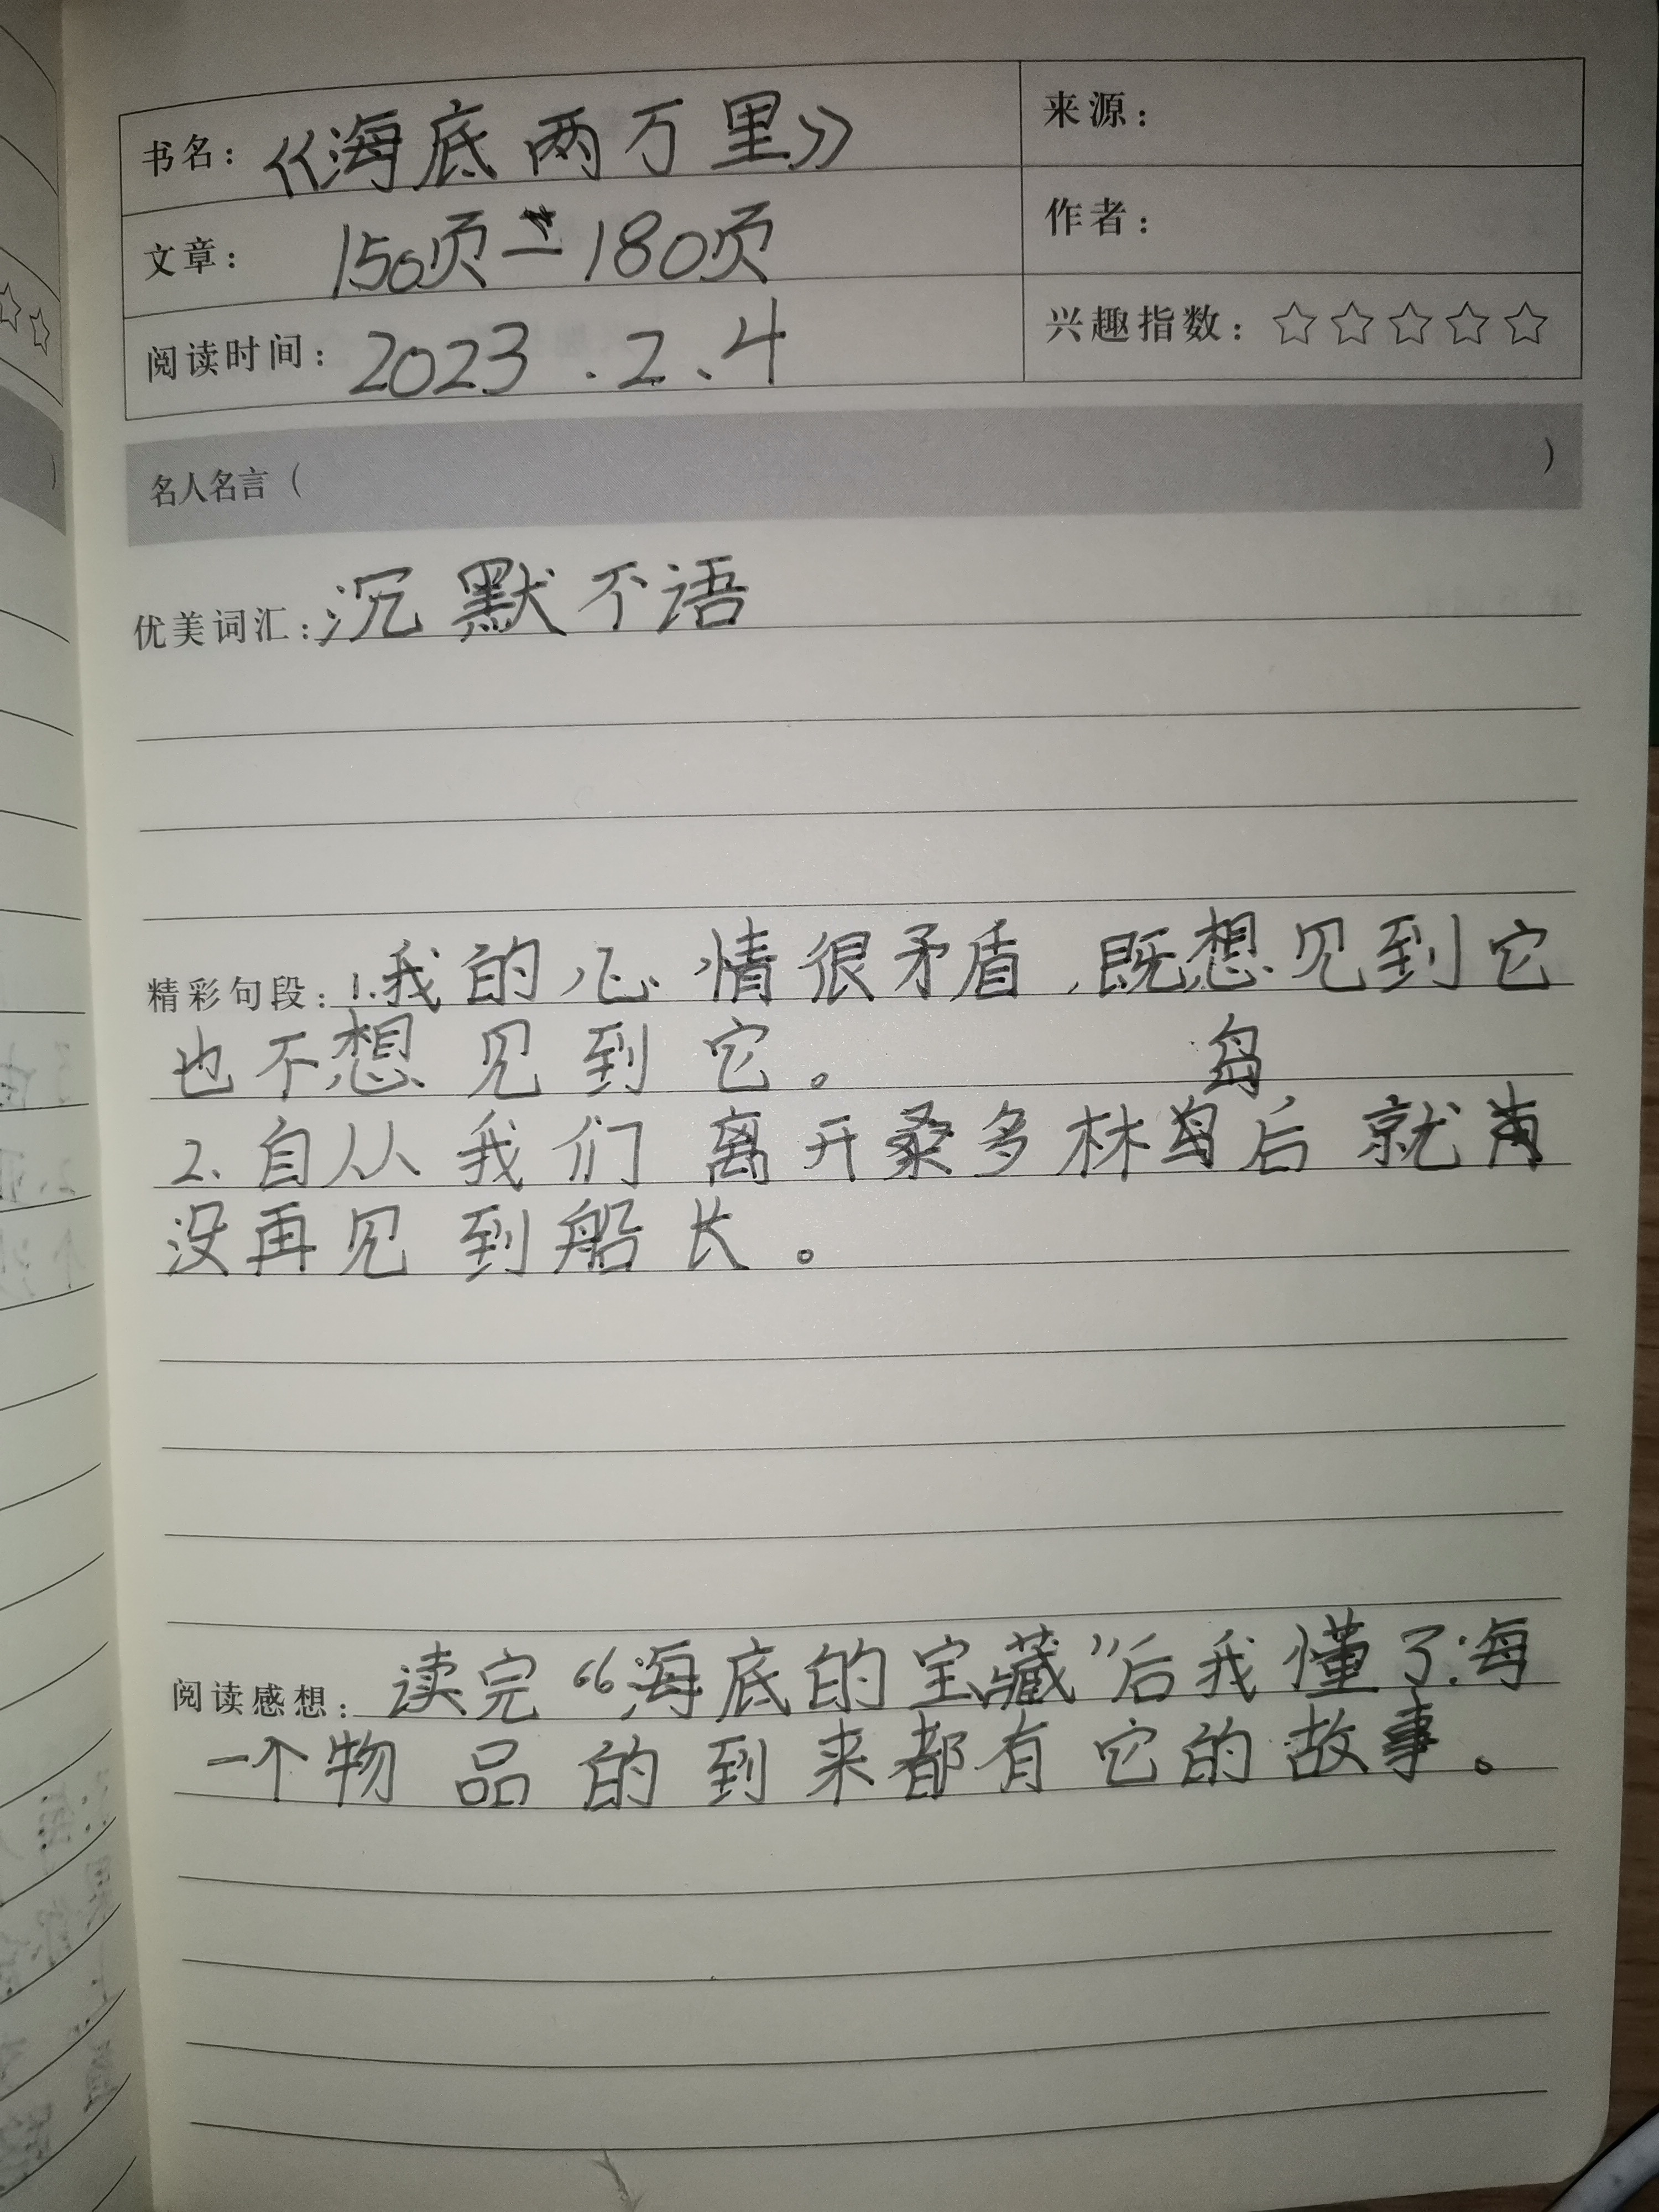 书名：《海底两万里》
来源：
文章：150页－180页
作者：
阅读时间：2023.2、4
兴趣指数：☆☆☆☆☆
名人名言（ ）
优美词汇：沉默不语
精彩句段：1.我的心情很矛盾，既想见到它
也不想见到它。
岛
2、自从我们离开桑多林后就
没再见到船长。
阅读感想：读完“海底的宝藏”后我懂了：海
一个物品的到来都有它的故事。